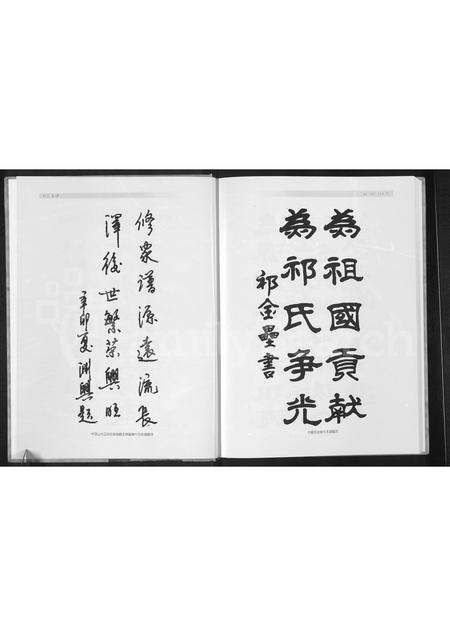 為祖國貢献
為祁氏争光
祁金壘書
修家譜源遠流長
澤後世繁荣興旺
辛卯夏渊興題